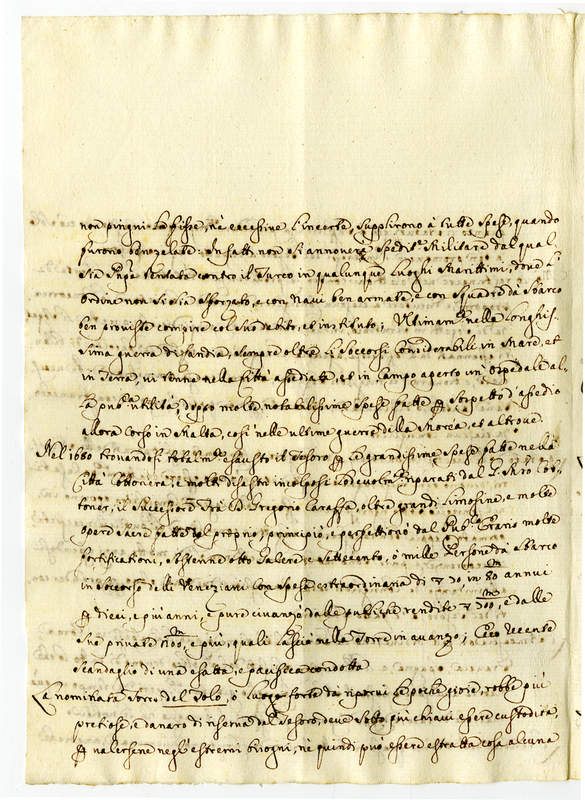 non pingui le fisse, nè eccessive l'incerte, supplirono à tutte spese, quando
furono ben zelate. Infatti non si annovera spedite Militare dal qual
sia Prpe tentata contro il Turco in qualunque luoghi Marittimi, dove l'
ordine non si sia sforzato, e con Navi ben armate, e con squadre da sbarco
ben proviste compire col suo debito, et instituto; Ultimamte nella longhis-
sima guerra di Candia, sempre oltre li soccorsi considerabile in Mare, et
in Terra, vi tenne nella Città assediata, et in Campo aperto un' ospedale al-
la puca utilità; doppo molte notabilissime spese fatte p sospetto d'assedio
allora corso in Malta, così nelle ultime guerre della Morea, et altrove.
Nel 1680 trovandosi totalmte esausto il Tesoro p le grandissime spese fatte nella
Città Cottonera, e molti disastri incolposi lodevolmte riparati dal G. Mro Cot-
toner, il successore Frà D. Gregorio Caraffa, oltre grandi limosine, e molte
opere sacre fatte col proprio, principiò, e perfettionò dal Pubco Erario molte
fortificationi, ostenne otto Galere, e settecento, ò mille Persone da sbarco
in soccorso delli Veneziani con spesa estraordinaria di 70 in 80 m annui
p dieci, e più anni, e pure civanzò dalle publiche rendite 300 m, e dalle
sue private 100 m, e più, quali lasciò nella Torre in avanzo; Ecco recente
scandaglio di una esatta, e pacifica condotta
La nominata Torre del Tolo, ò luogo forte da riporvi le poche gioie, robbe più
pretiose, e danaro di riserva del Tesoro, deve sotto più chiavi essere custodita,
p valersene negl'estremi bisogni, nè quindi può essere estratta cosa alcuna